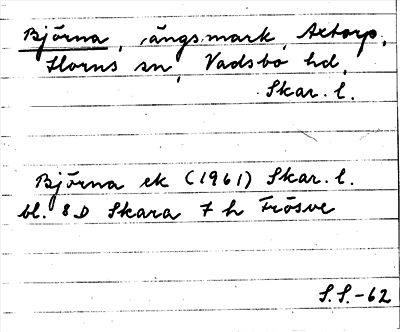 Björna, ängsmark, Axtorp,
Horns sn, Vadsbo hd,
Skar. l.
Björna ek (1961) Skar. l.
bl. 8D Skara 7 h Frösve
S.S.-62